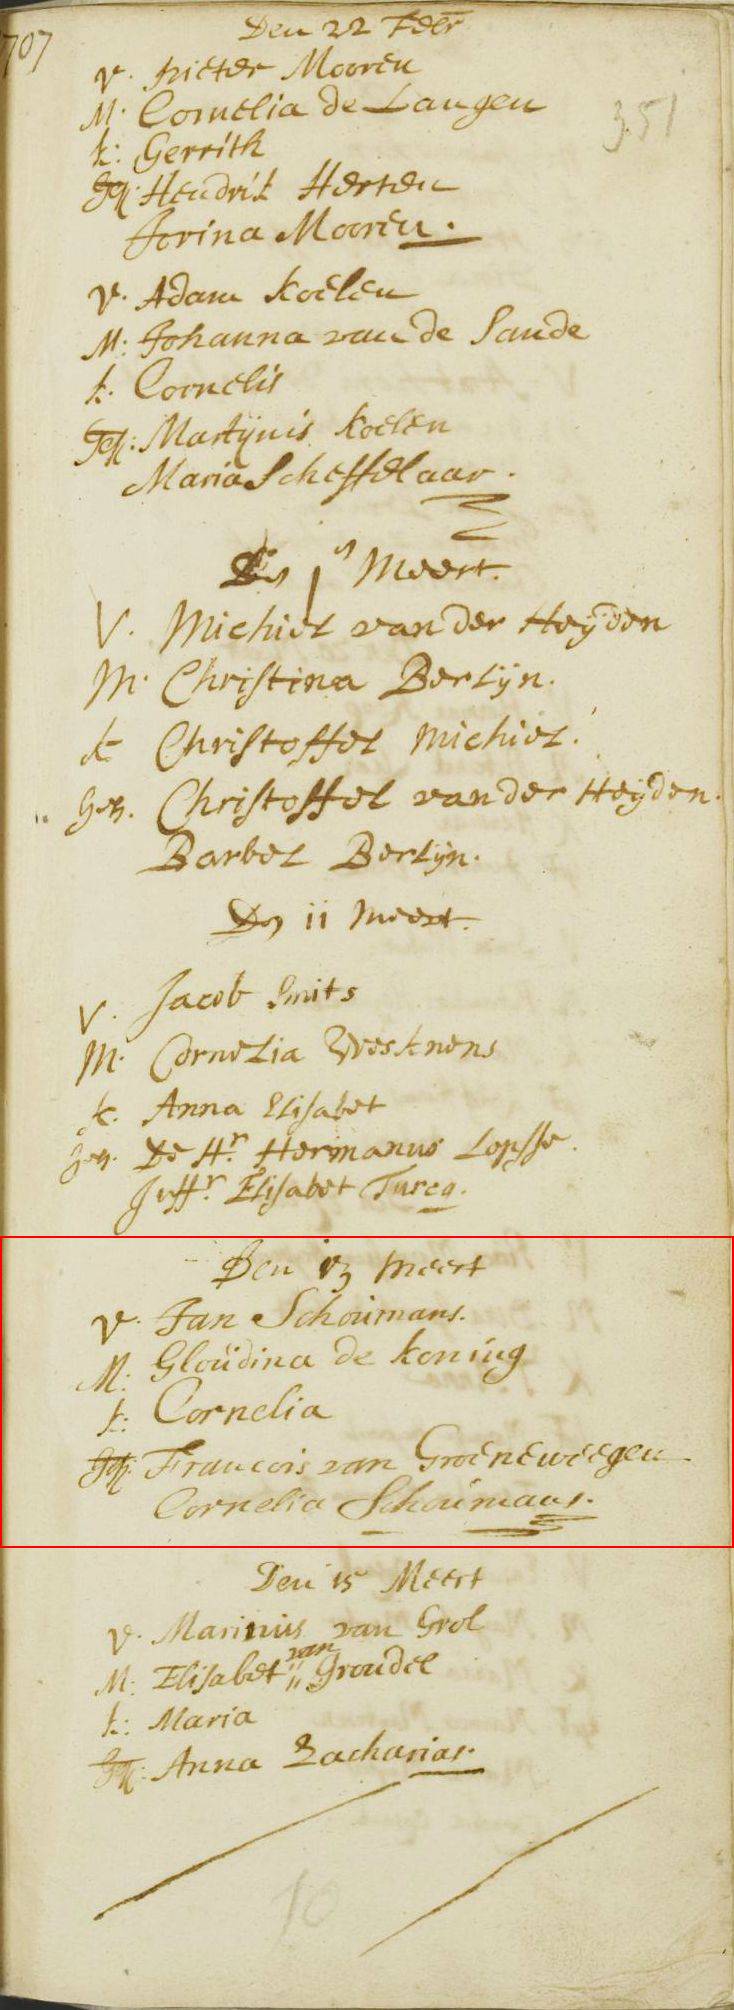 1707
Den 22 Febr
351
V. Pieter Mooren
M. Cornelia de Langen
k: Gerrith
Get: Hendrik Herten
Jorina Mooren.
V. Adam Koelen
M: Johanna van de Sande
k. Cornelis
Get: Martynis Koelen
Maria Scheffelaar.
Den 1n Meert.
V. Michiel van der Heyden
M. Christina Berlyn.
k Christoffel Michiel.
Get. Christoffel van der Heyden.
Barbel Berlyn.
Den 11 Meert.
V. Jacob Smits
M. Cornelia
k. Anna Elisabet
Get. De Hr. Hermanus
Juffr. Elisabet Turcq.
Den 13 Meert
V. Jan Schoümans.
M: Gloüdina de Koning
k: Cornelia
Get: Francois van Groeneweegen
Cornelia Schoümans.
Den 15 Meert
V. Marinus van Grol
M: Elisabet van Grondel
k: Maria
Get: Anna Zacharias.
10